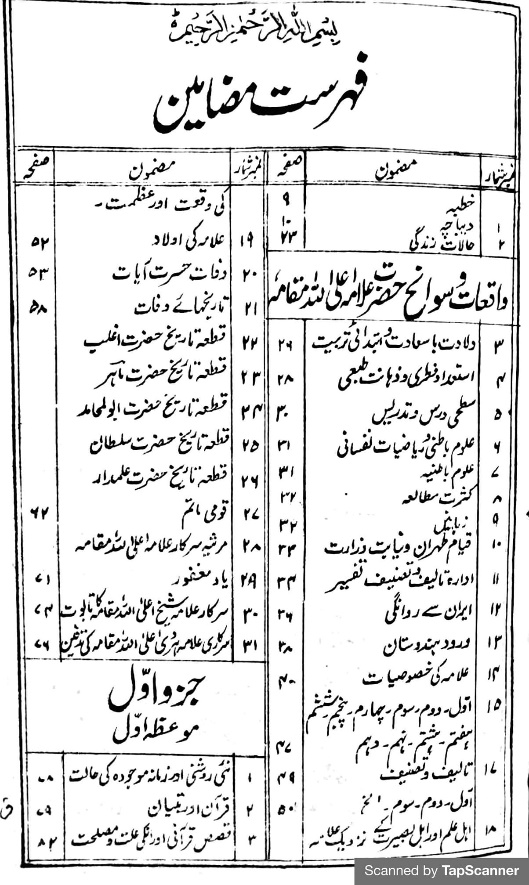 بسم اللہ الرحمٰن الرحیم
فہرست مضامین
نمبر شمار مضمون صفحہ
خطبہ ۹
۱ دیباچہ ۱۰
۲ حالات زندگی ۲۳
واقعات و سوانح حضرت علامہ اعلی اللہ مقامہ
۳ ولادت باسعادت و ابتدائی تربیت ۲۶
۴ استعداد فطری و ذہانت طبعی ۲۸
۵ سطحی درس و تدریس ۳۰
۶ علوم باطنی و ریاضیات نفسانی ۳۱
۷ علوم باطنیہ ۳۱
۸ کثرت مطالعہ ۳۲
۹ زبانیں ۳۲
۱۰ قیام طہران و نیابت وزارت ۳۳
۱۱ ادارۂ تالیف و تصنیف تفسیر ۳۴
۱۲ ایران سے روانگی ۳۶
۱۳ ورود ہندوستان ۳۸
۱۴ علامہ کی خصوصیات ۴۰
۱۵ اول۔ دوم۔ سوم۔ چہارم۔ پنجم۔ ششم
ہفتم۔ ہشتم۔ نہم۔ دہم ۴۷
۱۷ تالیف و تصنیف ۴۹
اول۔ دوم۔ سوم۔ الخ ۵۰
۱۸ اہل علم اور اہل بصیرت کے نزدیک علامہ
نمبر شمار مضمون صفحہ
کی وقعت اور عظمت۔
۱۹ علامہ کی اولاد ۵۲
۲۰ وفات حسرت آیات ۵۳
۲۱ تاریخہائے وفات ۵۸
۲۲ قطعہ تاریخ حضرت اغلب
۲۳ قطعہ تاریخ حضرت ماہر
۲۴ قطعہ تاریخ حضرت ابوالمحامد
۲۵ قطعہ تاریخ حضرت سلطان
۲۶ قطعہ تاریخ حضرت علمدار
۲۷ قومی ماتم ۶۲
۲۸ مرثیہ سرکار علامہ اعلی اللہ مقامہ
۲۹ یاد مغفور ۷۱
۳۰ سرکار علامہ شیخ اعلی اللہ مقامہ کا تابوت ۷۴
۳۱ سرکاری علامہ ہروی اعلی اللہ مقامہ کی تدفین ۷۶
جزو اوّل
موعظہ اوّل
۱ نئی روشنی اور زمانہ موجودہ کی حالت ۷۸
۲ قرآن اور بتیان ۷۹
۳ قصص قرآنی اور انکی علت و مصلحت ۸۲
Scanned by TapScanner